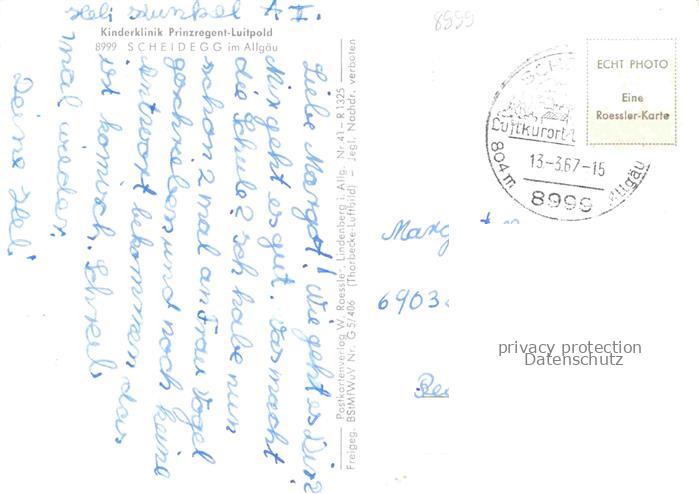 Heli Kunkel A. II.
Kinderklinik Prinzregent-Luitpold
8999 SCHEIDEGG im Allgäu
Liebe Margot! Wie geht es Dir?
Mir geht es gut. Was macht
die Schule? Ich habe nun
schon 2 mal an Frau Vogel
geschrieben und noch keine
Antwort bekommen das
ist komisch. Schreib
mal wieder.
Deine Heli
Postkartenverlag W. Roessler, Lindenberg i. Allg. Nr. 41 - R 1325
Freigeg. BStMfWuV Nr. G 5/406 (Thorbecke-Luftbild) - Jegl. Nachdr. verboten
8999
ECHT PHOTO
Eine
Roessler-Karte
SCH
Luftkurort
13.-3.67-15
804 m
8999
Allgäu
Marg
6903
privacy protection
Datenschutz